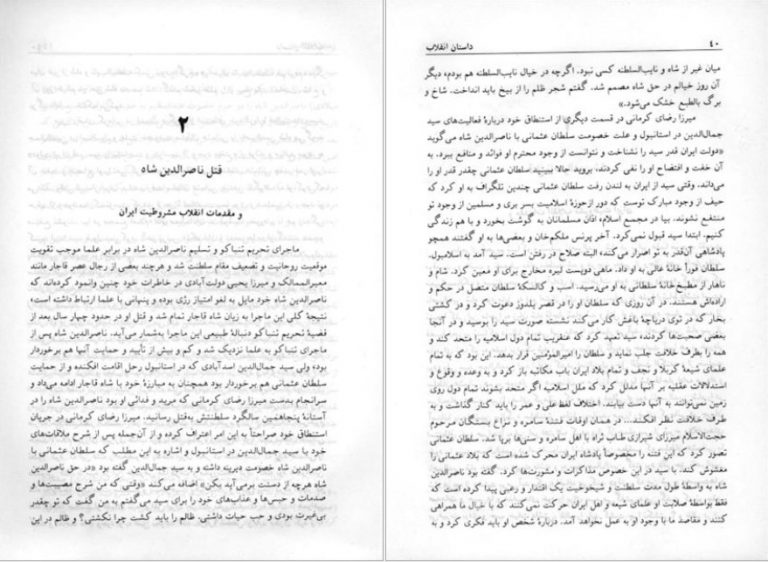 ۲
قتل ناصرالدین شاه
و مقدمات انقلاب مشروطیت ایران
ماجرای تحریم تنباکو و تسلیم ناصرالدین شاه در برابر علما موجب تقویت
موقعیت روحانیت و تضعیف مقام سلطنت شد و هرچند بعضی از رجال عصر قاجار مانند
معیرالممالک و میرزا یحیی دولت‌آبادی در خاطرات خود چنین وانمود کرده‌اند که
ناصرالدین شاه خود مایل به لغو امتیاز رژی بوده و پنهانی با علما ارتباط داشته است،
نتیجهٔ کلی این ماجرا به زیان شاه قاجار تمام شد و قتل او در حدود چهار سال بعد از
قضیهٔ تحریم تنباکو دنبالهٔ طبیعی این ماجرا به‌شمار می‌آید. ناصرالدین شاه پس از
ماجرای تنباکو به علما نزدیک شد و کم و بیش از تأیید و حمایت آنها هم برخوردار
بود، ولی سید جمال‌الدین اسدآبادی که در استانبول رحل اقامت افکنده و از حمایت
سلطان عثمانی هم برخوردار بود همچنان به مبارزهٔ خود با شاه قاجار ادامه می‌داد و
سرانجام بدست میرزا رضای کرمانی که مرید و فدائی او بود ناصرالدین شاه را در
آستانهٔ پنجاهمین سالگرد سلطنتش به‌قتل رسانید. میرزا رضای کرمانی در جریان
استنطاق خود صراحتاً به این امر اعتراف کرده و از آن‌جمله پس از شرح ملاقات‌های
خود با سید جمال‌الدین در استانبول و اشاره به این مطلب که سلطان عثمانی با
ناصرالدین شاه خصومت دیرینه داشته و به سید جمال‌الدین گفته بود «در حق ناصرالدین
شاه هرچه از دستت برمی‌آید بکن» اضافه می‌کند «وقتی که من شرح مصیبت‌ها و
صدمات و حبس‌ها و عذاب‌های خود را برای سید می‌گفتم به من گفت که تو چقدر
بی‌غیرت بودی و حب حیات داشتی. ظالم را باید کشت چرا نکشتی؟ و ظالم در این
۴۰ داستان انقلاب
میان غیر از شاه و نایب‌السلطنه کسی نبود. اگرچه در خیال نایب‌السلطنه هم بودم، دیگر
آن روز خیالم در حق شاه مصمم شد. گفتم شجر ظلم را از بیخ باید انداخت. شاخ و
برگ بالطبع خشک می‌شود.»
میرزا رضای کرمانی در قسمت دیگری از استنطاق خود دربارهٔ فعالیت‌های سید
جمال‌الدین در استانبول و علت خصومت سلطان عثمانی با ناصرالدین شاه می‌گوید
«دولت ایران قدر سید را نشناخت و نتوانست از وجود محترم او فوائد و منافع ببرد. به
آن خفت و افتضاح او را نفی کردند. بروید حالا ببینید سلطان عثمانی چقدر قدر او را
می‌داند. وقتی سید از ایران به لندن رفت سلطان عثمانی چندین تلگراف به او کرد که
حیف از وجود مبارک توست که دور از حوزهٔ اسلامیت بسر بری و مسلمین از وجود تو
منتفع نشوند. بیا در مجمع اسلام، اذان مسلمانان به گوشت بخورد و با هم زندگی
کنیم. ابتدا سید قبول نمی‌کرد. آخر پرنس ملکم‌خان و بعضی‌ها به او گفتند همچو
پادشاهی آن‌قدر به تو اصرار می‌کند، البته صلاح در رفتن است. سید آمد به اسلامبول.
سلطان فوراً خانهٔ عالی به او داد. ماهی دویست لیره مخارج برای او معین کرد. شام و
ناهار از مطبخ‌خانهٔ سلطانی به او می‌رسید. اسب و کالسکهٔ سلطان متصل در حکم و
اراده‌اش هستند. در آن روزی که سلطان او را در قصر یلدوز دعوت کرد و در کشتی
بخار که در توی دریاچهٔ باغش کار می‌کند نشسته صورت سید را بوسید و در آنجا
بعضی صحبت‌ها کردند، سید تعهد کرد که عنقریب تمام دول اسلامیه را متحد کند و
همه را بطرف خلافت جلب نماید و سلطان را امیرالمؤمنین قرار بدهد. این بود که به تمام
علمای شیعهٔ کربلا و نجف و تمام بلاد ایران باب مکاتبه باز کرد و به وعده و وقوع و
استدلالات عقلیه بر آنها مدلل کرد که ملل اسلام اگر متحد بشوند تمام دول روی
زمین نمی‌توانند به آنها دست بیابند. اختلاف لفظ علی و عمر را باید کنار گذاشت و به
طرف خلافت نظر افکند... در همان اوقات فتنهٔ سامره و نزاع بستگان مرحوم
حجت‌الاسلام میرزای شیرازی طاب ثراه با اهل سامره و سنی‌ها برپا شد. سلطان عثمانی
تصور کرد که این فتنه را مخصوصاً پادشاه ایران محرک شده است که بلاد عثمانی را
مغشوش کند. با سید در این خصوص مذاکرات و مشورت‌ها کرد. گفته بود ناصرالدین
شاه به واسطهٔ طول مدت سلطنت و شیخوخیت یک اقتدار و رعبی پیدا کرده است که
فقط بواسطهٔ صلابت او علمای شیعه و اهل ایران حرکت نمی‌کنند که با خیال ما همراهی
کنند و مقاصد ما با وجود او به عمل نخواهد آمد. دربارهٔ شخص او باید فکری کرد و به